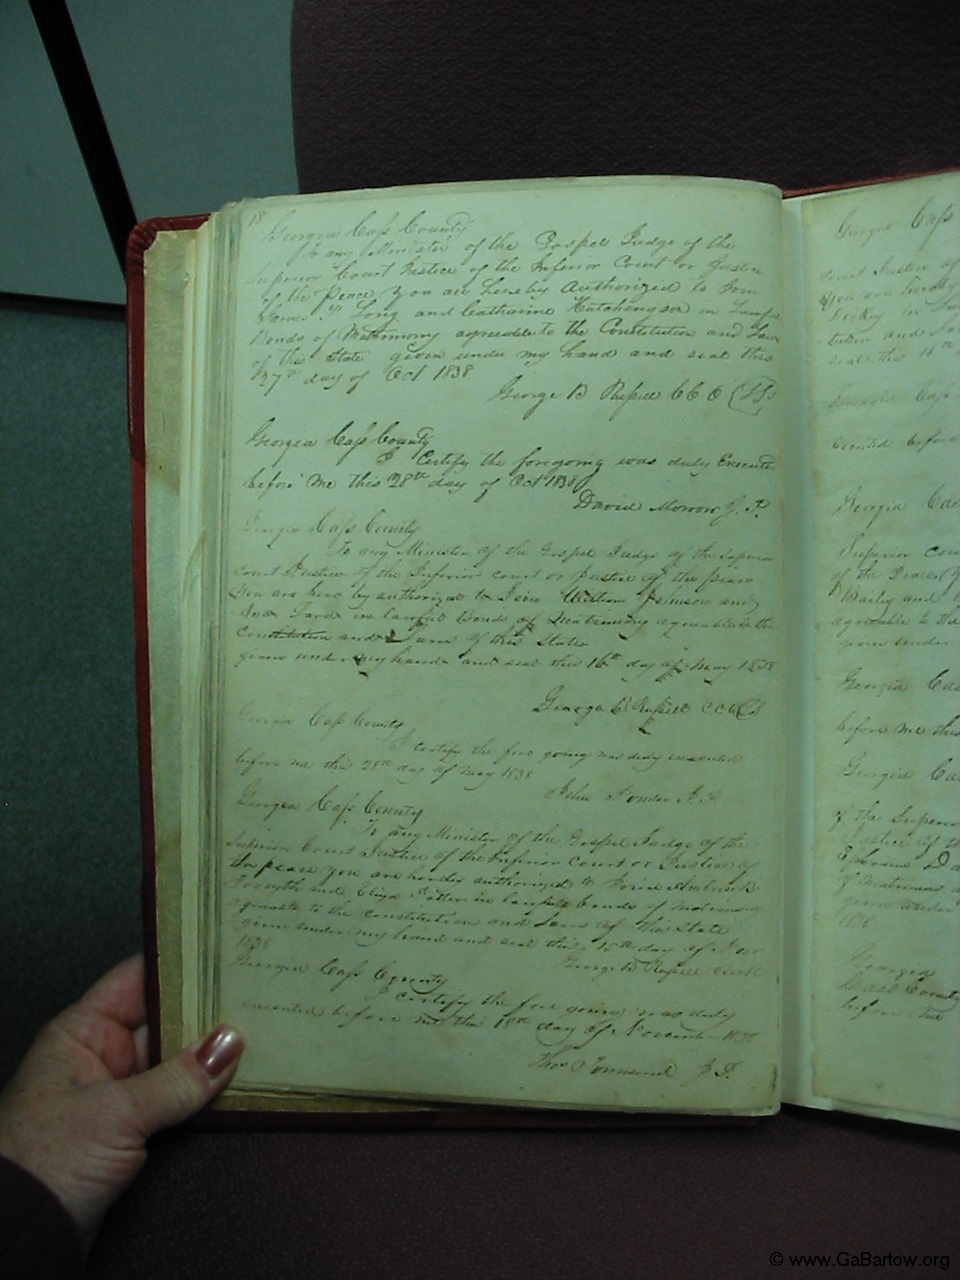 18
Georgia Cass County
To any Minister of the Gospel Judge of the
Superior Court Justice of the Inferior Court or Justice
of the Peace, You are hereby Authorized to Join
James T Long and Catharine Hutchengson in Lawful
Bonds of Matrimony agreeable to the Constitution and Laws
of this State given under my hand and seal this
27th day of Oct 1838
George B Russell C C O (LS)
Georgia Cass County
I Certify the foregoing was duly Executed
before Me this 28th day of Oct 1838
David Morrow J. P.
Georgia Cass County
To any Minister of the Gospel Judge of the Superior
court Justice of the Inferior court or Justice of the peace
You are here by authorized to Join William and
in lawful Bonds of Matrimony agreeable to the
Constitution and Laws of this State
given under my hand and seal this 16th day of May 1838
George B Russell C C O LS
Georgia Cass County
I certify the fore going was duly executed
before me this 28th day of May 1838
John J. P.
Georgia Cass County
To any Minister of the Gospel Judge of the
Superior Court Justice of the Inferior Court or Justice of
the peace you are authorized to Joine Ambrose B
Forsyth and Eliza in lawful bonds of matrimony
agreeable to the constitution and laws of this State
given under my hand and seal this 15th day of Nov
1838
George B Russell Clerk
Georgia Cass County
I certify the fore going was duly
executed before me this 18th day of November 1838
Thos Townsend J. P.
Georgia Cass
Court Justice of
You are hereby
in
and La
seal this 16th
Georgia Cass
executed before
Georgia Cas
Superior Cou
of the Peace
and
agreeable to the
given under
Georgia Cas
before me this
Georgia Ca
of the Superio
Justice of th
of Matrimony
given under
1838
Georgia
Cass County
before me
© www.GaBartow.org